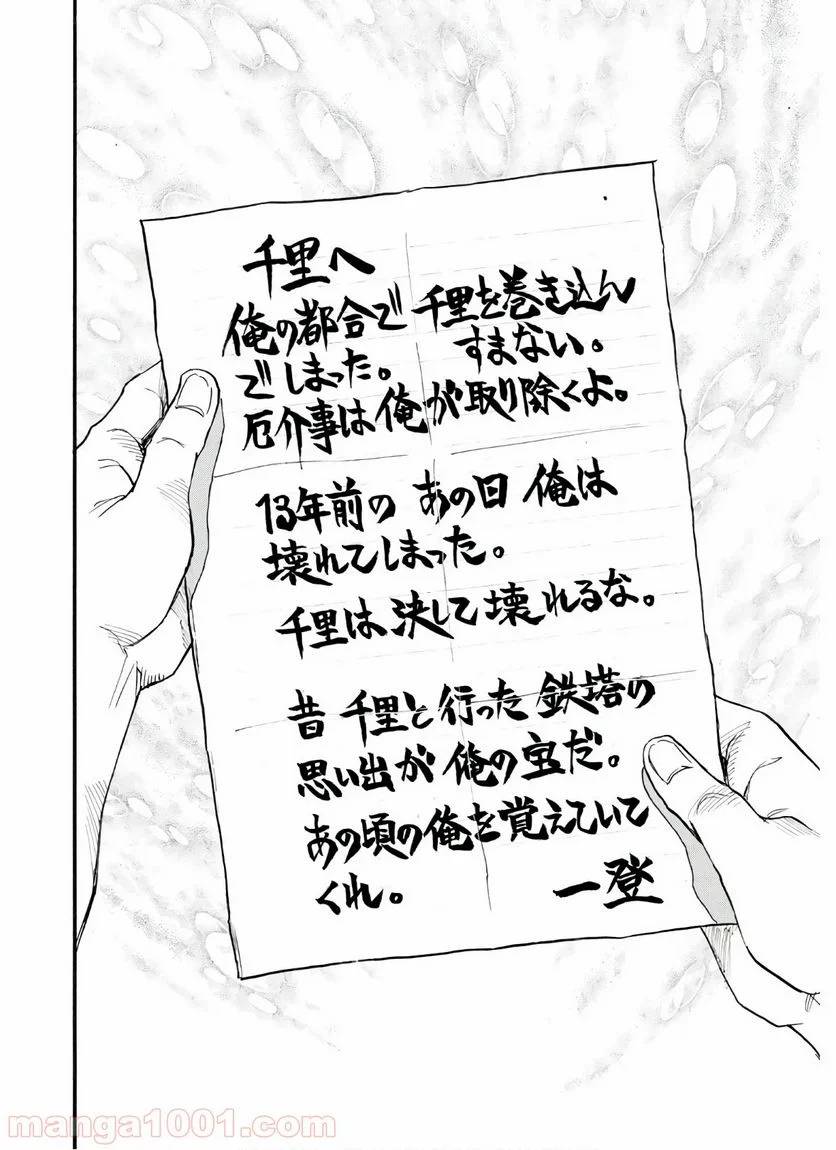 千里へ
俺の都合で 千里を巻き込ん
でしまった。 すまない。
厄介事は俺が取り除くよ。
13年前の あの日 俺は
壊れてしまった。
千里は決して壊れるな。
昔 千里と行った 鉄塔の
思い出が 俺の宝だ。
あの頃の俺を覚えていて
くれ。 一登
manga1001.com